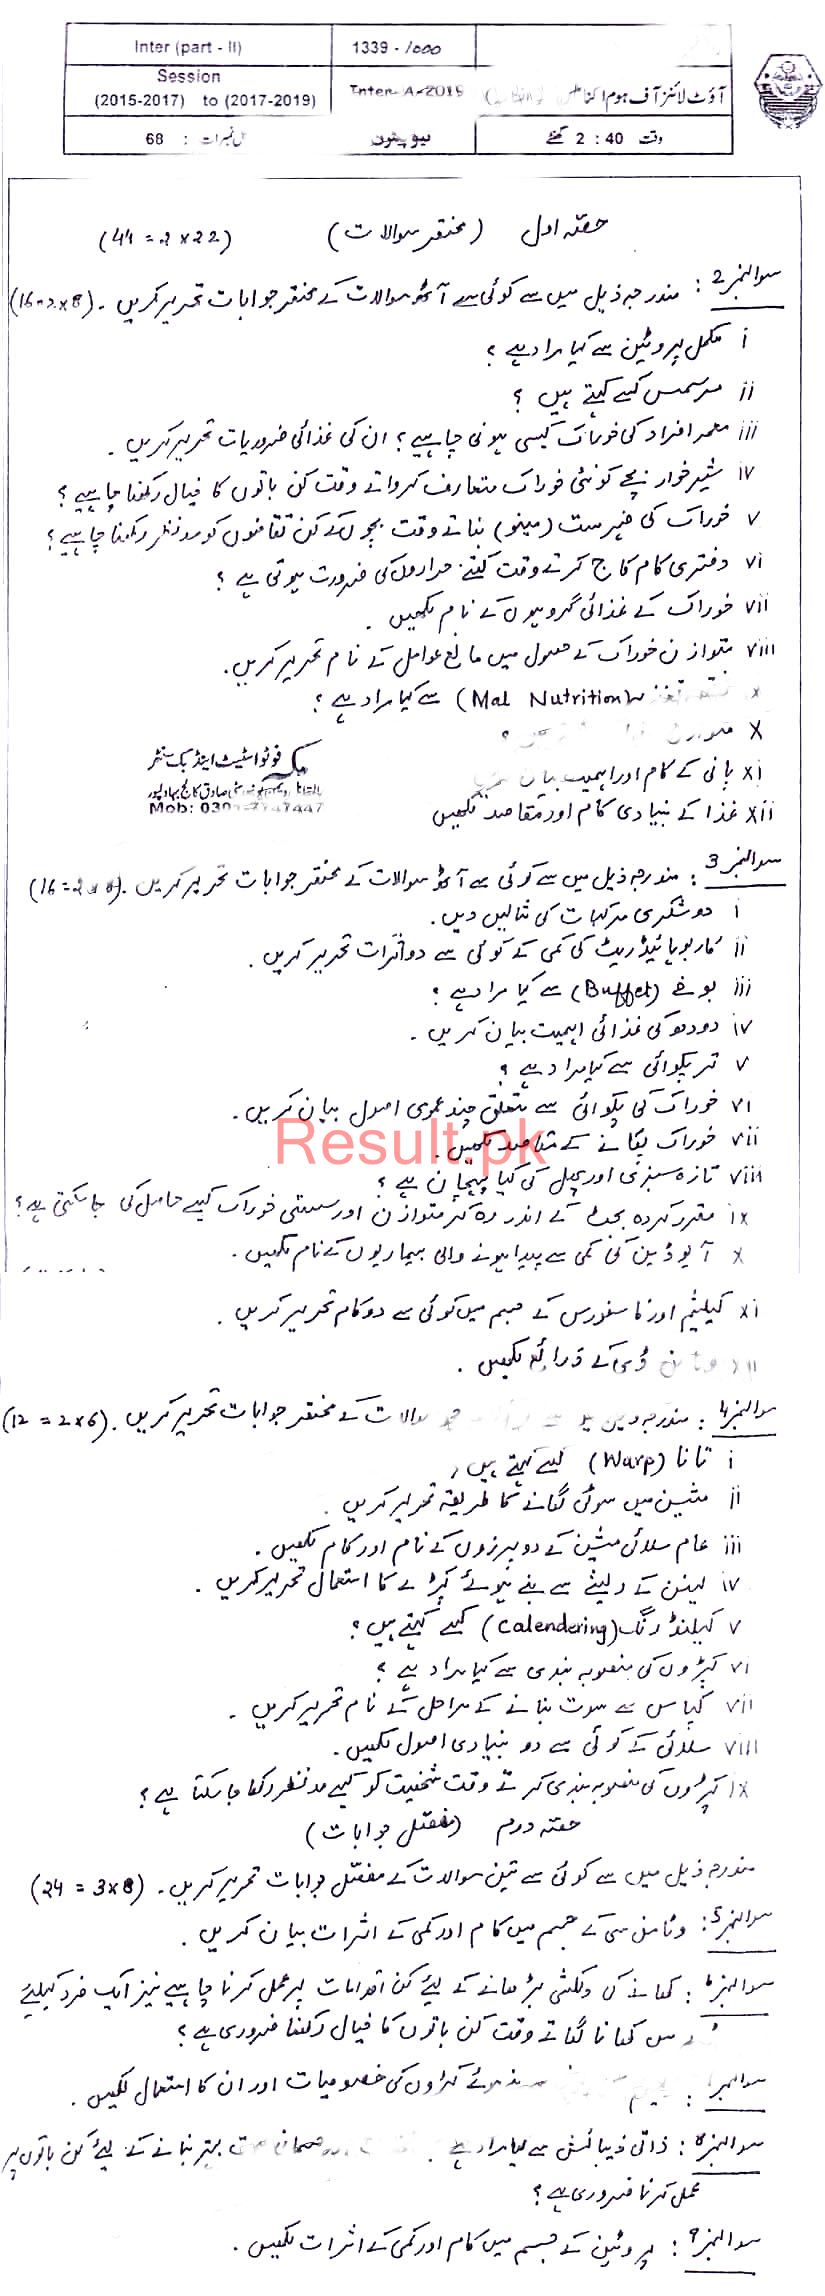 Inter (part - II)
1339 - 1000
Session
(2015-2017) to (2017-2019)
Inter-A-2019
آؤٹ لائنز آف ہوم اکنامکس
کل نمبرات : 68
نیو پیٹرن
وقت 2 : 40 گھنٹے
حصّہ اول (مختصر سوالات) (44 = 2 x 22)
سوال نمبر 2 : مندرجہ ذیل میں سے کوئی سے آٹھ سوالات کے مختصر جوابات تحریر کریں ۔ (16 = 2 x 8)
i مکمل پروٹین سے کیا مراد ہے ؟
ii مرسمس کسے کہتے ہیں ؟
iii معمر افراد کی خوراک کیسی ہونی چاہیے ؟ ان کی غذائی ضروریات تحریر کریں ۔
iv شیر خوار بچے کو نئی خوراک متعارف کرواتے وقت کن باتوں کا خیال رکھنا چاہیے ؟
v خوراک کی فہرست (مینو) بناتے وقت بچوں کے کن تقاضوں کو مدنظر رکھنا چاہیے ؟
vi دفتری کام کاج کرتے وقت کتنے حراروں کی ضرورت ہوتی ہے ؟
vii خوراک کے غذائی گروہوں کے نام لکھیں ۔
viii متوازن خوراک کے حصول میں مانع عوامل کے نام تحریر کریں ۔
(Mal Nutrition) سے کیا مراد ہے ؟
x
مکہ فوٹو اسٹیٹ اینڈ بک سنٹر
صادق کالج بہاولپور
Mob:
xi پانی کے کام اور اہمیت بیان
xii غذا کے بنیادی کام اور مقاصد لکھیں
سوال نمبر 3 : مندرجہ ذیل میں سے کوئی سے آٹھ سوالات کے مختصر جوابات تحریر کریں ۔ (16 = 2 x 8)
i دو شکری مرکبات کی مثالیں دیں ۔
ii کاربوہائیڈریٹ کی کمی کے کوئی سے دو اثرات تحریر کریں ۔
iii بوفے (Buffet) سے کیا مراد ہے ؟
iv دودھ کی غذائی اہمیت بیان کریں ۔
v تر پکوائی سے کیا مراد ہے ؟
vi خوراک کی پکوائی سے متعلق چند عمومی اصول بیان کریں ۔
vii خوراک پکانے کے مقاصد لکھیں ۔
Result.pk
viii تازہ سبزی اور پھل کی کیا پہچان ہے ؟
ix مقرر کردہ بجٹ کے اندر رہ کر متوازن اور سستی خوراک کیسے حاصل کی جا سکتی ہے ؟
x آیوڈین کی کمی سے پیدا ہونے والی بیماریوں کے نام لکھیں ۔
xi کیلشیم اور فاسفورس کے جسم میں کوئی سے دو کام تحریر کریں ۔
ڈی کے ذرائع لکھیں ۔
سوال نمبر 4 : مندرجہ ذیل میں سے سوالات کے مختصر جوابات تحریر کریں ۔ (12 = 2 x 6)
i تانا (Warp) کسے کہتے ہیں ؟
ii مشین میں سوئی لگانے کا طریقہ تحریر کریں ۔
iii عام سلائی مشین کے دو پرزوں کے نام اور کام لکھیں ۔
iv لینن کے ریشے سے بنے ہوئے کپڑے کا استعمال تحریر کریں ۔
v کیلنڈرنگ (Calendering) کسے کہتے ہیں ؟
vi کپڑوں کی منصوبہ بندی سے کیا مراد ہے ؟
vii کپاس سے سوت بنانے کے مراحل کے نام تحریر کریں ۔
viii سلائی کے کوئی سے دو بنیادی اصول لکھیں ۔
ix کپڑوں کی منصوبہ بندی کرتے وقت شخصیت کو کیسے مدنظر رکھا جا سکتا ہے ؟
حصّہ دوم (مفصّل جوابات)
مندرجہ ذیل میں سے کوئی سے تین سوالات کے مفصّل جوابات تحریر کریں ۔ (24 = 3 x 8)
سوال نمبر 5 : وٹامن سی کے جسم میں کام اور کمی کے اثرات بیان کریں ۔
سوال نمبر 6 : کھانے کی دلکشی بڑھانے کے لیئے کن اقدامات پر عمل کرنا چاہیے نیز ایک فرد کیلئے
میں کھانا لگاتے وقت کن باتوں کا خیال رکھنا ضروری ہے ؟
سوال نمبر : ہوئے کپڑوں کی خصوصیات اور ان کا استعمال لکھیں ۔
سوال نمبر 8 : ذاتی زیبائش سے کیا مراد ہے بہتر بنانے کے لیئے کن باتوں پر
عمل کرنا ضروری ہے ؟
سوال نمبر 9 : پروٹین کے جسم میں کام اور کمی کے اثرات لکھیں ۔